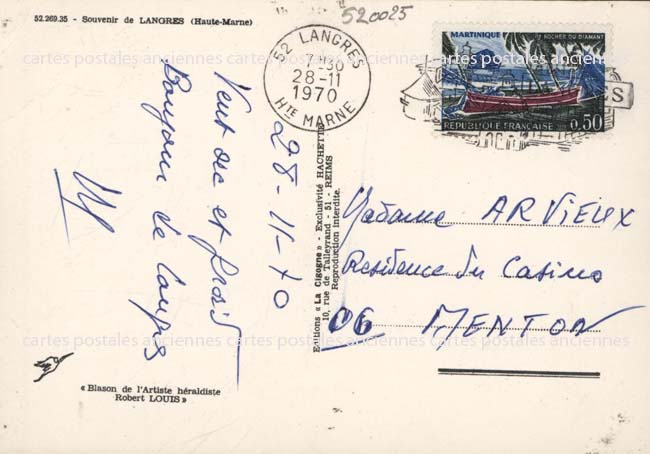 52.269.35 - Souvenir de LANGRES (Haute-Marne)
520025
52 LANGRES
7H30
28-11
1970
HTE MARNE
MARTINIQUE LE ROCHER DU DIAMANT
REPUBLIQUE FRANÇAISE 0,50
S
28-11-70
Vent sec et froid
Bonjour de Langres
Editions « La Cigogne » - Exclusivité HACHETTE
10, rue de Talleyrand - 51 - REIMS
Reproduction interdite.
Madame ARVIEUX
Residence du Casino
06 MENTON
« Blason de l'Artiste héraldiste
Robert LOUIS »
cartes postales anciennes cartes postales anciennes cartes postales anciennes
cartes postales anciennes cartes postales anciennes cartes postales anciennes
cartes postales anciennes cartes postales anciennes cartes postales anciennes